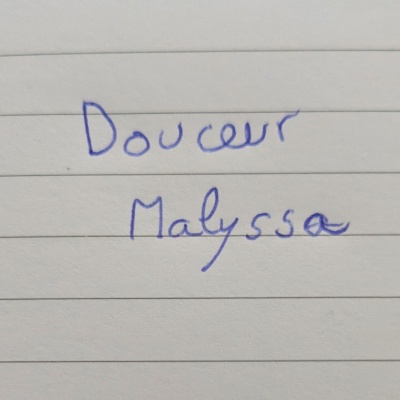 Douceur
Malyssa